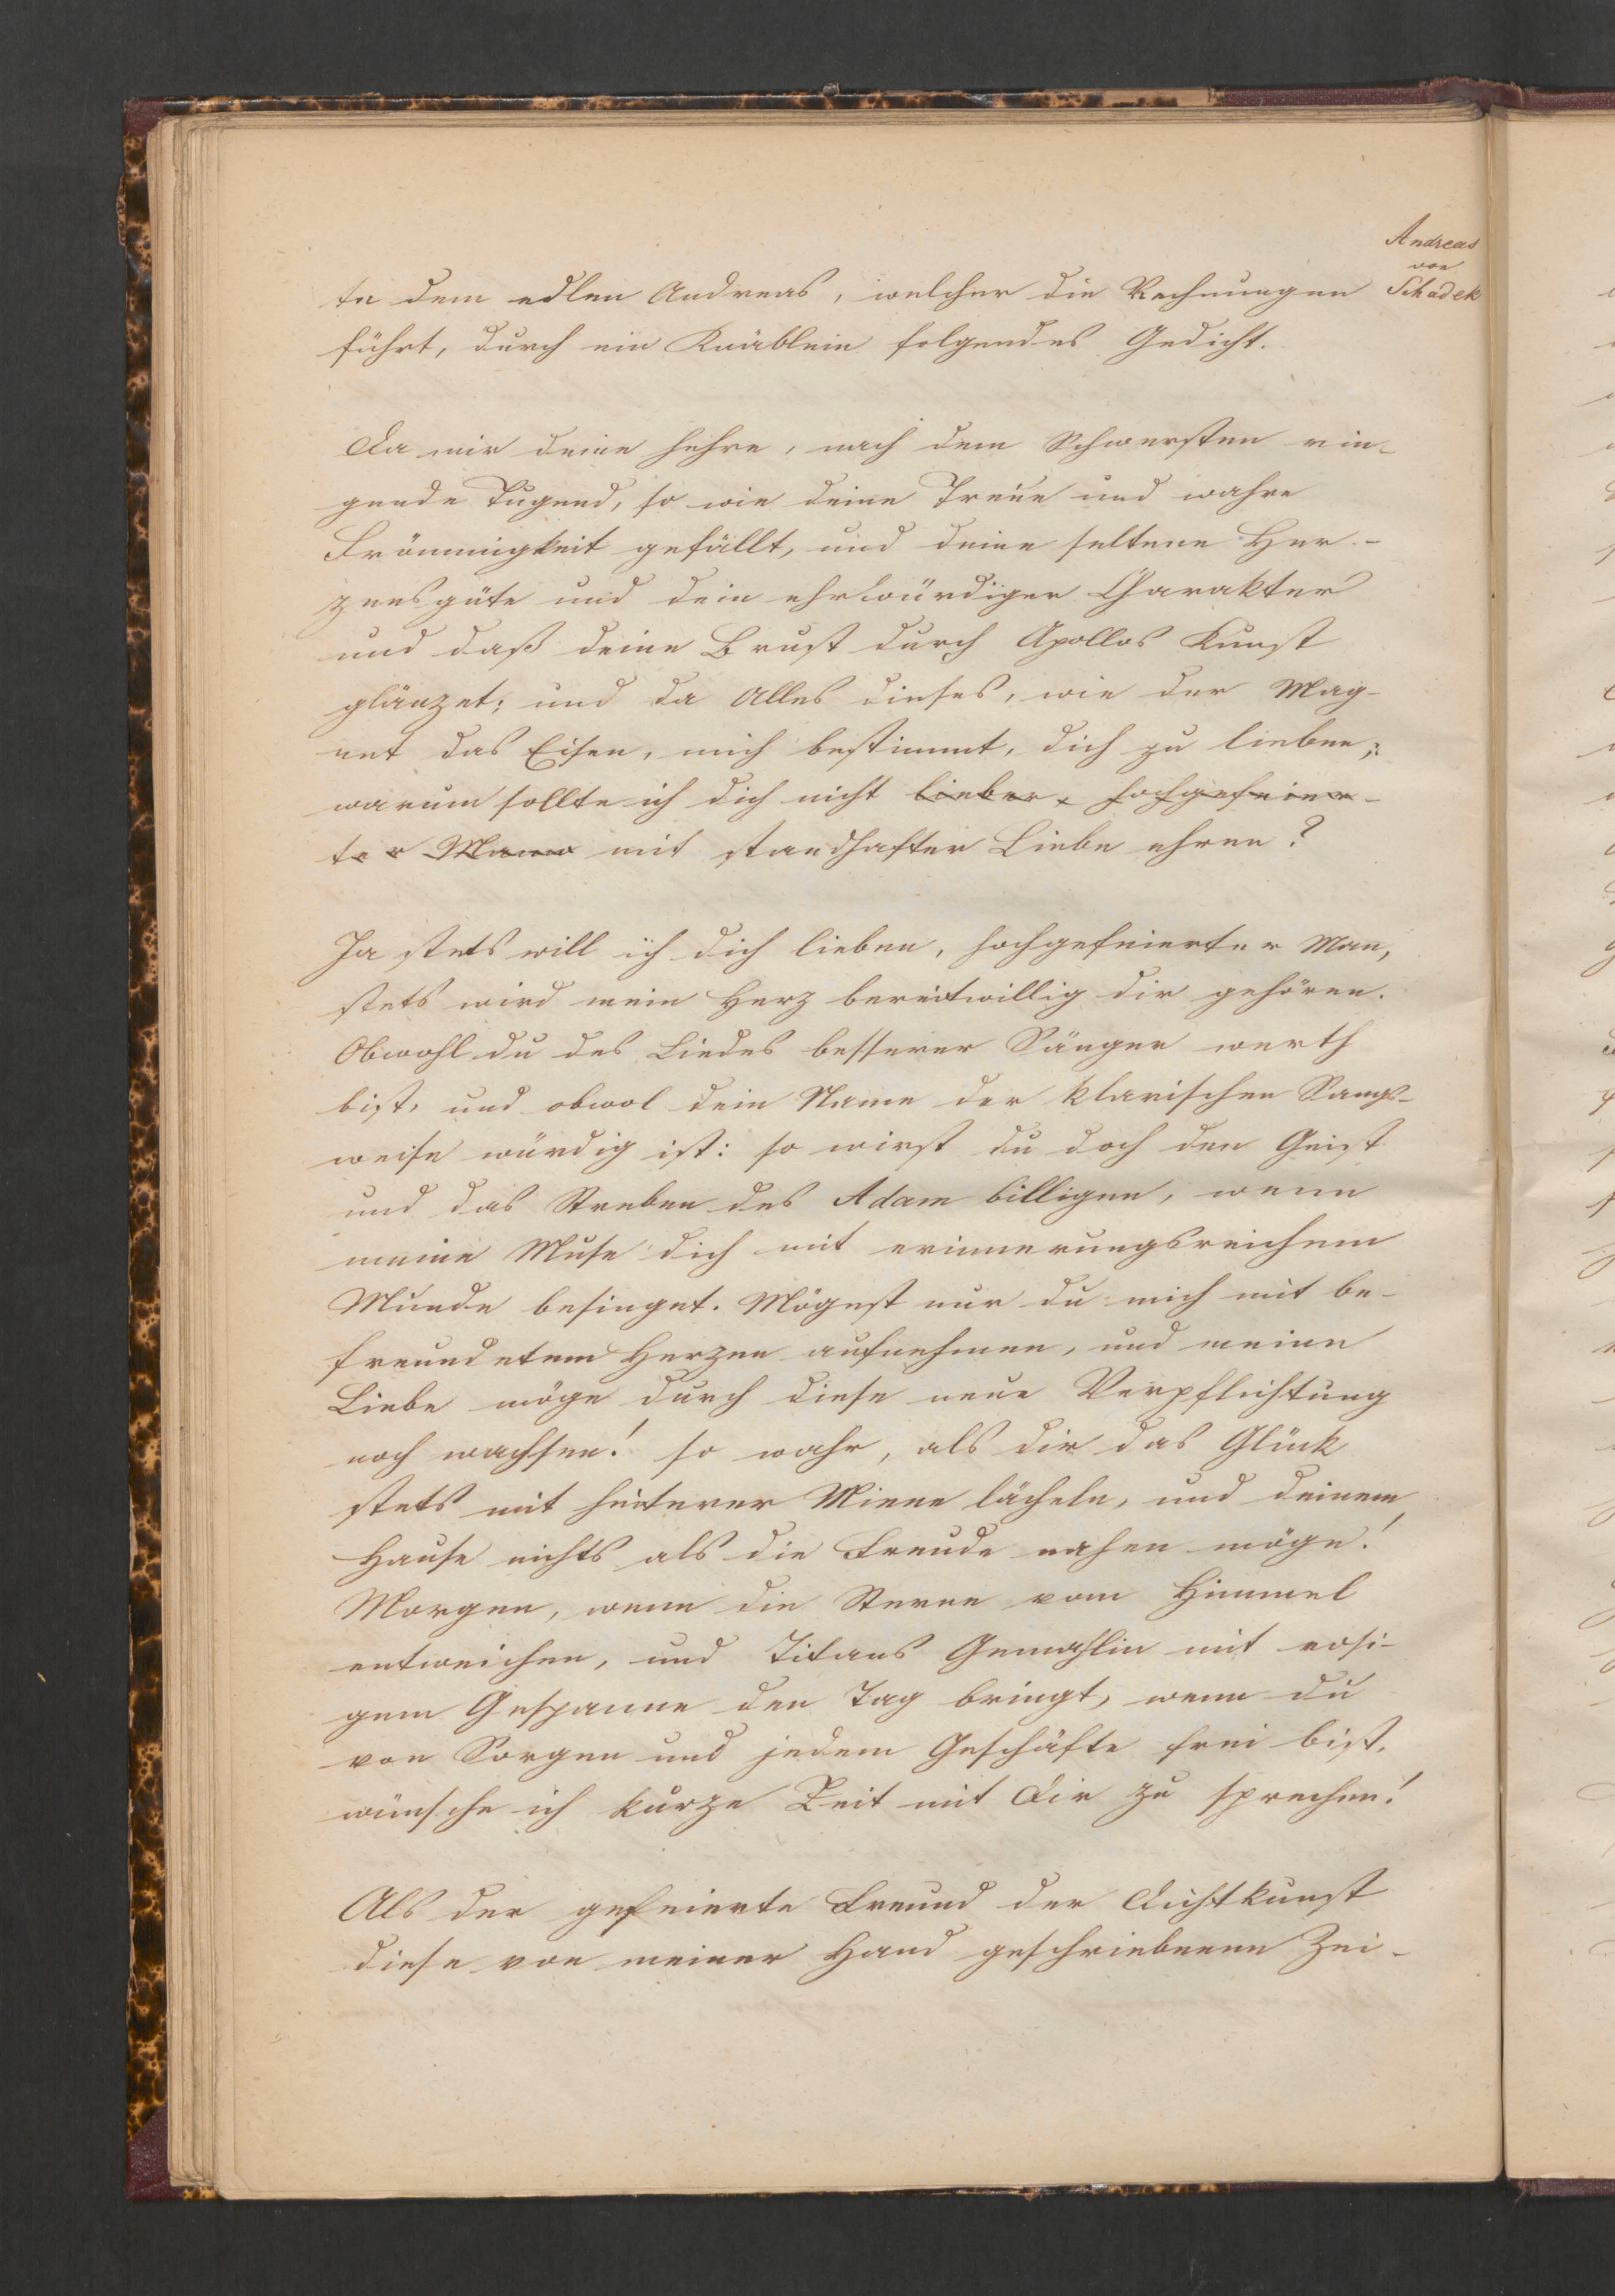 Andreas
von
Schadek
te dem edlen Andreas, welcher die Rechnungen
führt, durch ein Knäblein folgendes Gedicht.
Da mir deine hehre, nach dem Schwersten rin-
gende Tugend, so wie deine Treue und wahre
Frömmigkeit gefällt, und deine seltene Her-
zensgüte und dein ehrwürdiger Charakter
und daß deine Brust durch Apollos Kunst
glänzet; und da Alles dieses, wie der Mag-
net das Eisen, mich bestimmt, dich zu lieben;
warum sollte ich dich nicht lieber, hochgefeier-
ter Mann mit standhafter Liebe ehren?
Ja stets will ich dich lieben, hochgefeierter Man,
stets wird mein Herz bereitwillig dir gehören.
Obwohl du des Liedes besserer Sänger werth
bist, und obwol dein Name der klarischen Sangs-
weise würdig ist: so wirst du doch den Geist
und das Streben des Adam billigen, wenn
meine Muse dich mit erinnerungsreichem
Munde besinget. Mögest nur du mich mit be-
freundetem Herzen aufnehmen, und meine
Liebe möge durch diese neue Verpflichtung
noch wachsen! so wahr, als dir das Glück
stets mit heiterer Miene lächeln, und deinem
Hause nichts als die Freude nahen möge!
Morgen, wenn die Sterne vom Himmel
entweichen, und Titans Gemahlin mit rosi-
gem Gespanne den Tag bringt, wenn du
von Sorgen und jedem Geschäfte frei bist,
wünsche ich kurze Zeit mit Dir zu sprechen!
Als der gefeierte Freund der Dichtkunst
diese von meiner Hand geschriebenen Zei-